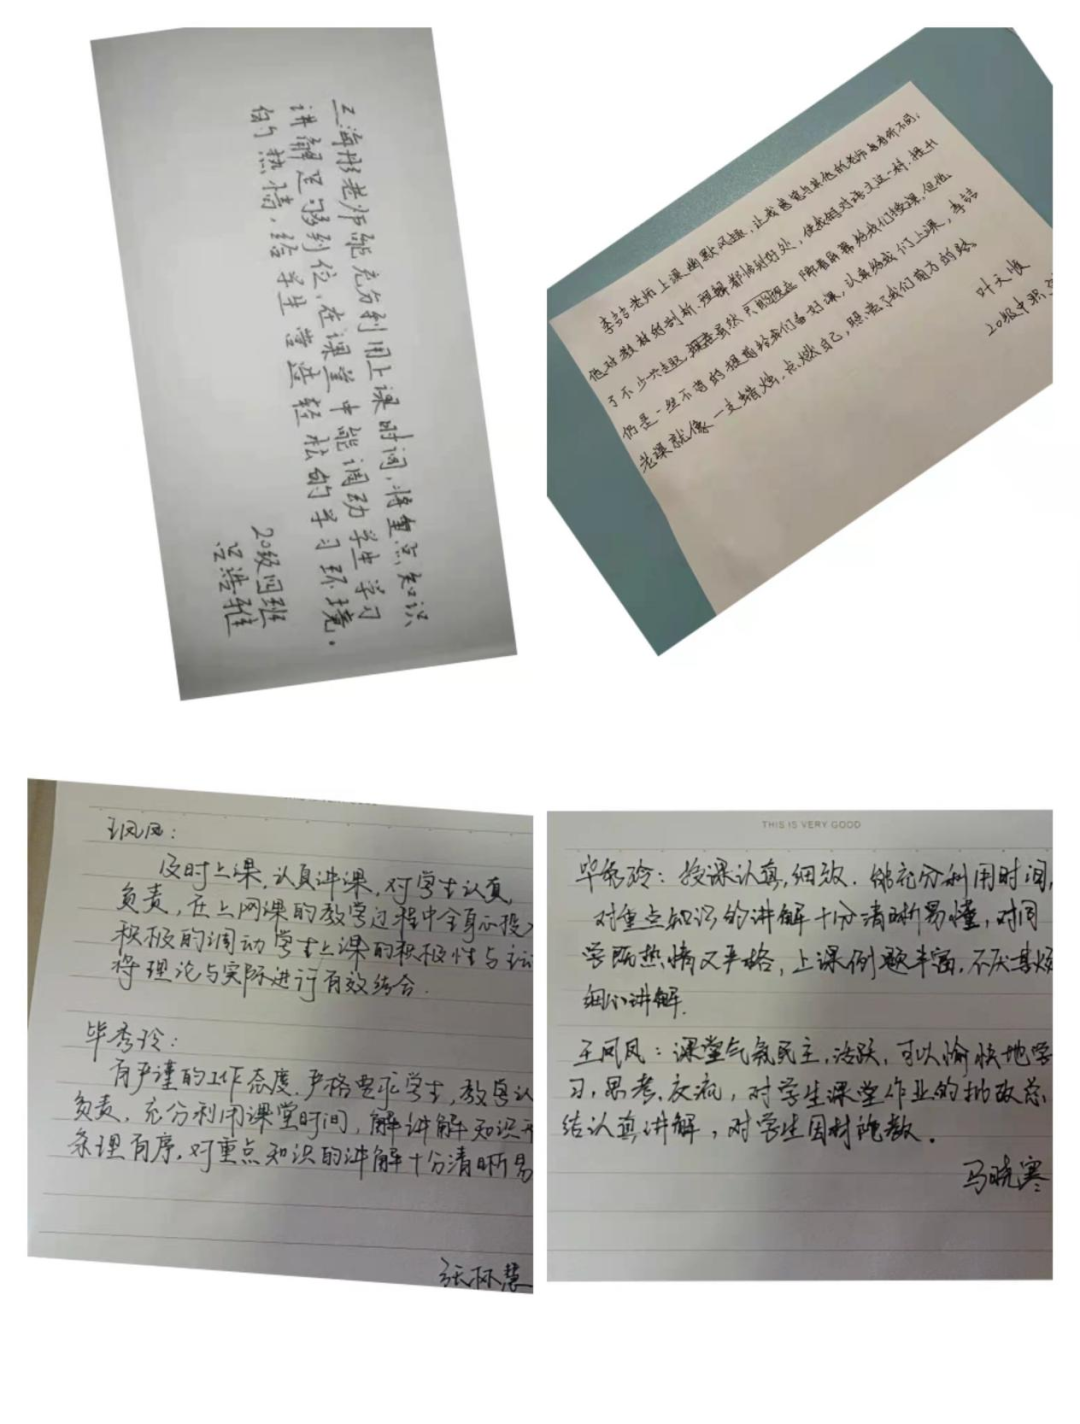 王海彤老师能充分利用上课时间，将重点知识
讲解足够到位，在课堂中能调动学生学习
的热情，给学生营造轻松的学习环境。
20级四班
吕浩雅
李喆老师上课幽默风趣，让我感觉与其他的老师与有所不同，
他对教材的剖析理解都恰到好处，使我们对语文这一科，提升
了不少兴趣，虽然隔着屏幕给我们授课，但他
仍是一丝不苟的提前给我们备好课，认真给我们上课，李喆
老课就像一支蜡烛，点燃自己，照亮了我们前方的路。
叶文
20级中职
THIS IS VERY GOOD
王凤凤：
及时上课，认真讲课，对学生认真
负责，在上网课的教学过程中全身心投
积极的调动学生上课的积极性与主动
将理论与实际进行有效结合.
毕秀玲：
有严谨的工作态度，严格要求学生，教学认
负责，充分利用课堂时间，解讲解知识
条理有序，对重点知识的讲解十分清晰易
张怀慧
毕秀玲：授课认真，细致．能充分利用时间，
对重点知识的讲解十分清晰易懂，对同
学既热情又严格，上课例题丰富，不厌其烦
细心讲解.
王凤凤：课堂气氛民主，活跃，可以愉快地学
习，思考，交流，对学生课堂作业的批改总
结认真讲解，对学生因材施教．
马晓寒